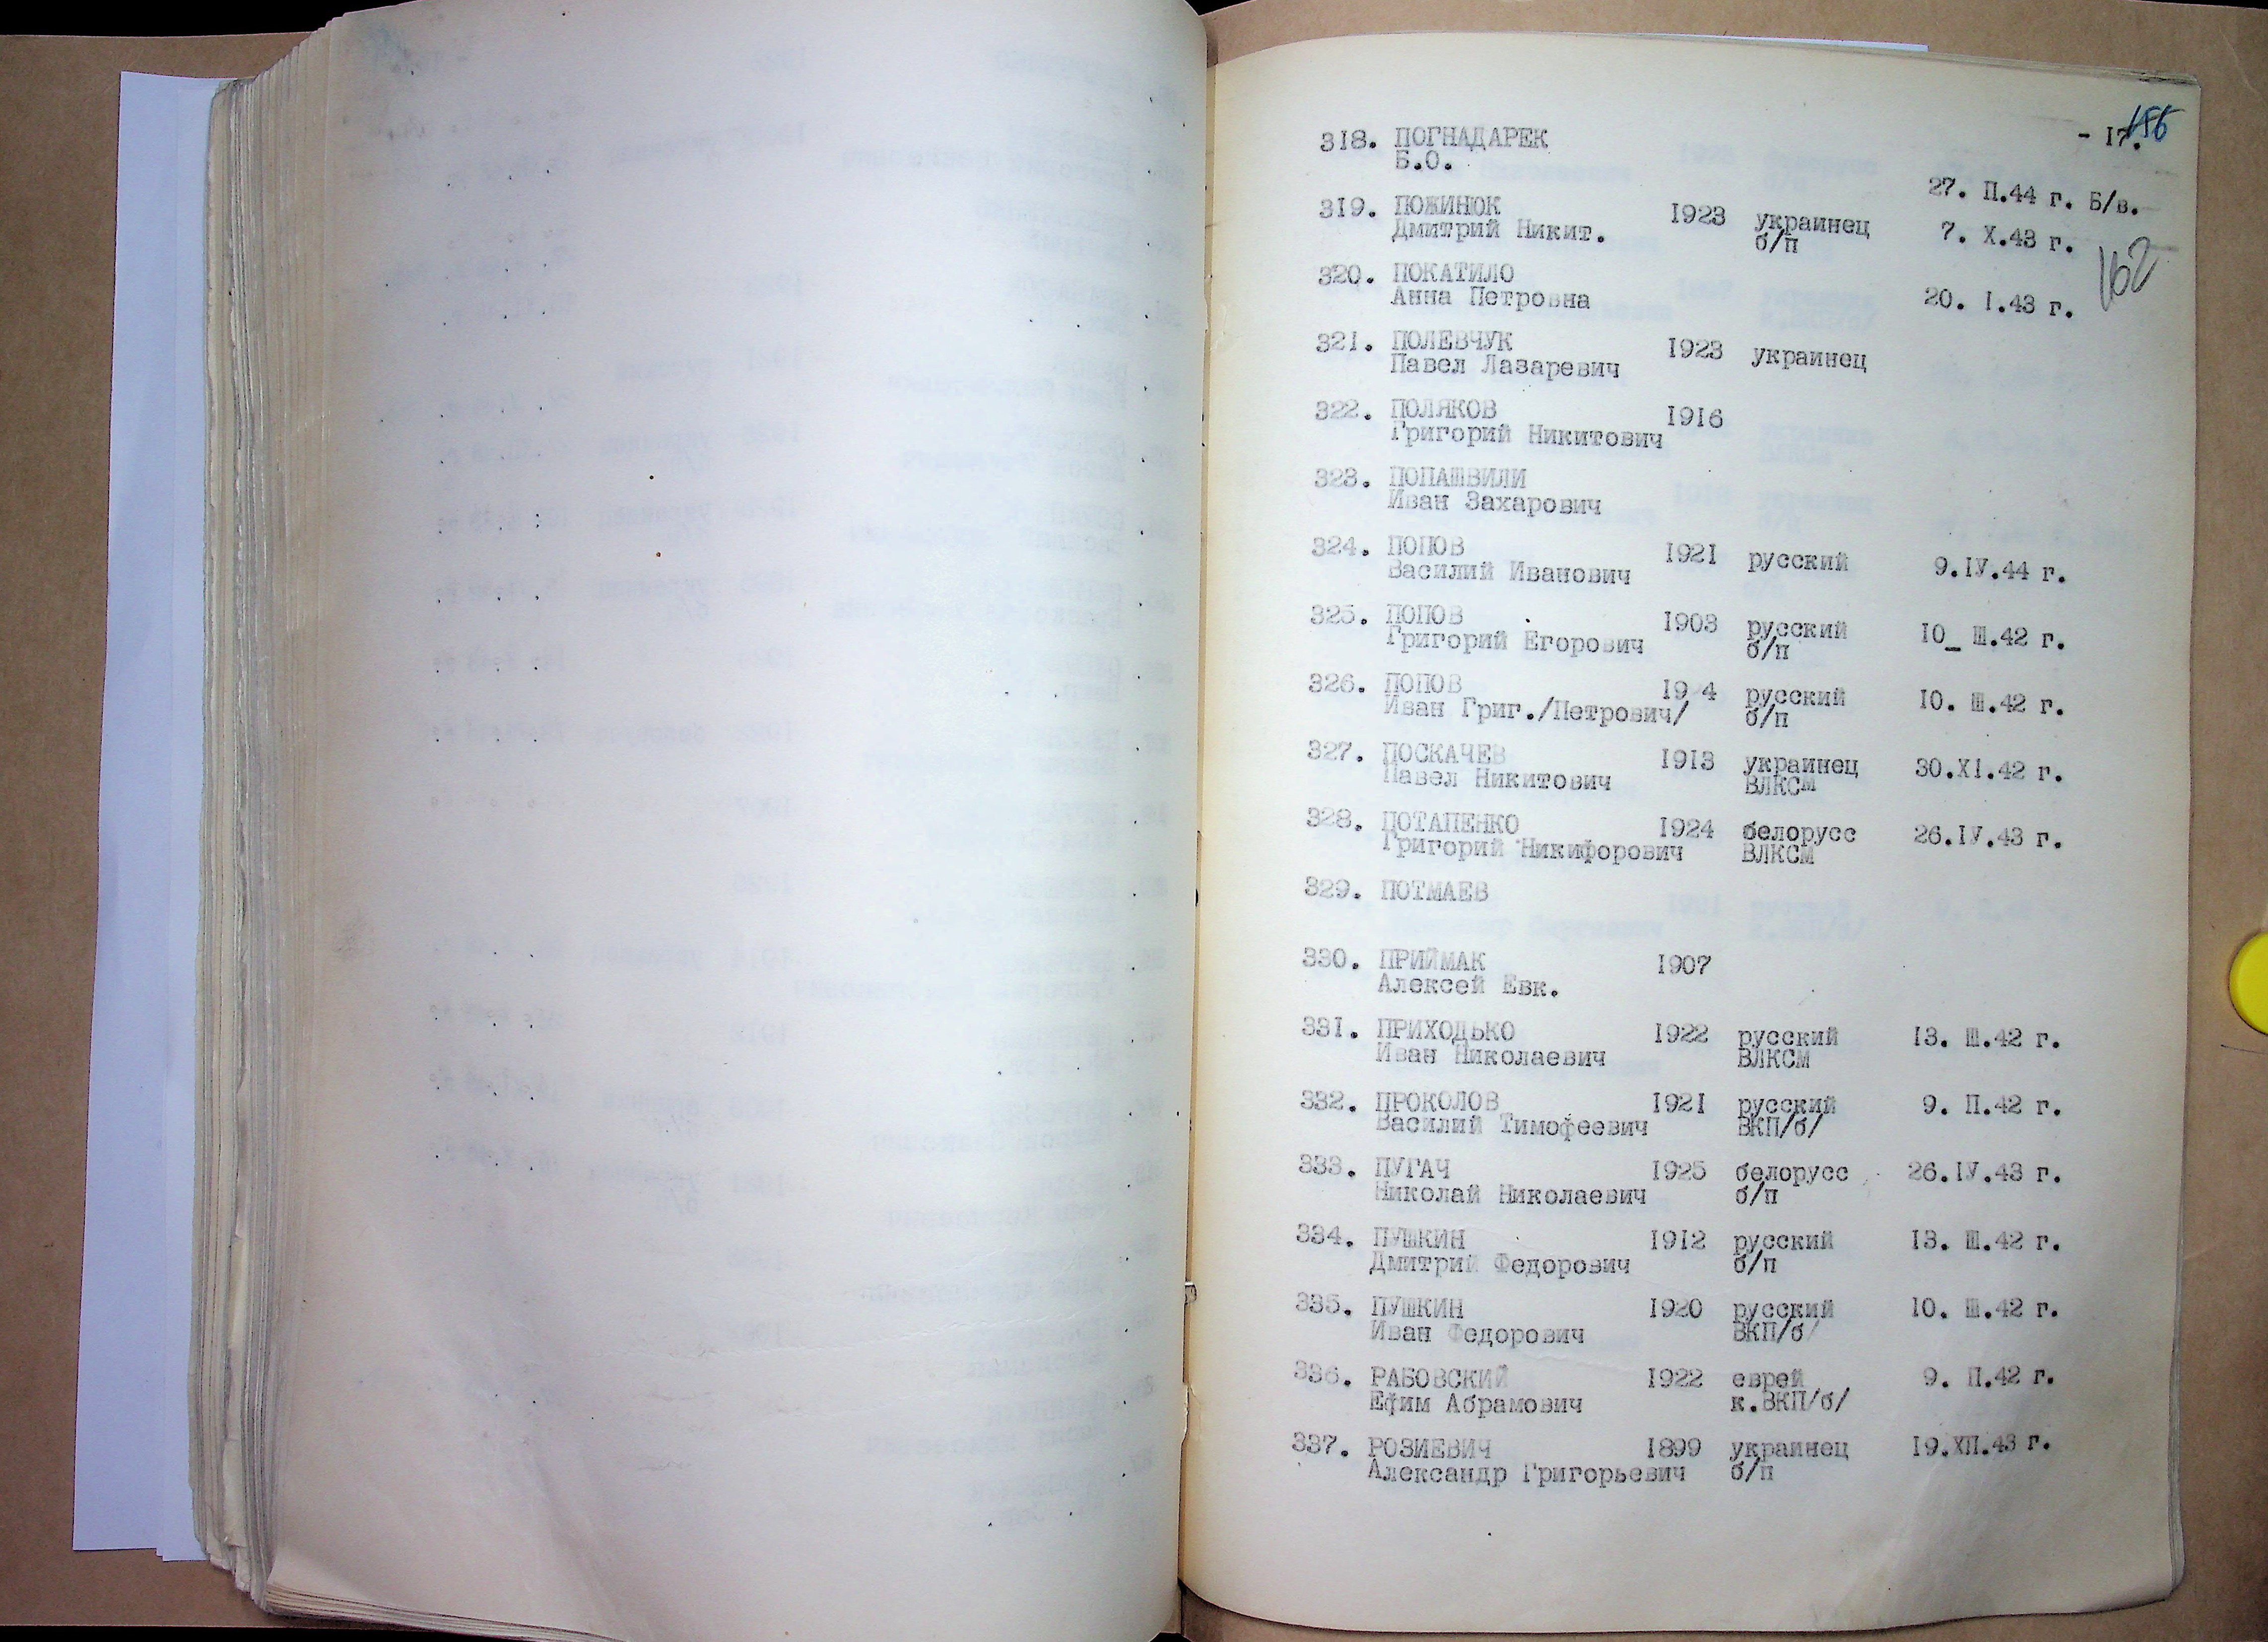 - 17.
156
318. ПОГНАДАРЕК
Б.О.
27. П.44 г. Б/в.
319. ПОЖИНЮК 1923 украинец 7. X.43 г.
Дмитрий Никит. б/п
162
320. ПОКАТИЛО
Анна Петровна 20. I.43 г.
321. ПОЛЕВЧУК 1923 украинец
Павел Лазаревич
322. ПОЛЯКОВ 1916
Григорий Никитович
323. ПОПАШВИЛИ
Иван Захарович
324. ПОПОВ 1921 русский 9.IУ.44 г.
Василий Иванович
325. ПОПОВ 1903 русский 10_ Ш.42 г.
Григорий Егорович б/п
326. ПОПОВ 19 4 русский 10. Ш.42 г.
Иван Григ./Петрович/ б/п
327. ПОСКАЧЕВ 1913 украинец 30.XI.42 г.
Павел Никитович ВЛКСМ
328. ПОТАПЕНКО 1924 белорусс 26.IУ.43 г.
Григорий Никифорович ВЛКСМ
329. ПОТМАЕВ
330. ПРИЙМАК 1907
Алексей Евк.
331. ПРИХОДЬКО 1922 русский 13. Ш.42 г.
Иван Николаевич ВЛКСМ
332. ПРОКОЛОВ 1921 русский 9. П.42 г.
Василий Тимофеевич ВКП/б/
333. ПУГАЧ 1925 белорусс 26.IУ.43 г.
Николай Николаевич б/п
334. ПУШКИН 1912 русский 13. Ш.42 г.
Дмитрий Федорович б/п
335. ПУШКИН 1920 русский 10. Ш.42 г.
Иван Федорович ВКП/б/
336. РАБОВСКИЙ 1922 еврей 9. П.42 г.
Ефим Абрамович к.ВКП/б/
337. РОЗИЕВИЧ 1899 украинец 19.ХП.43 г.
Александр Григорьевич б/п